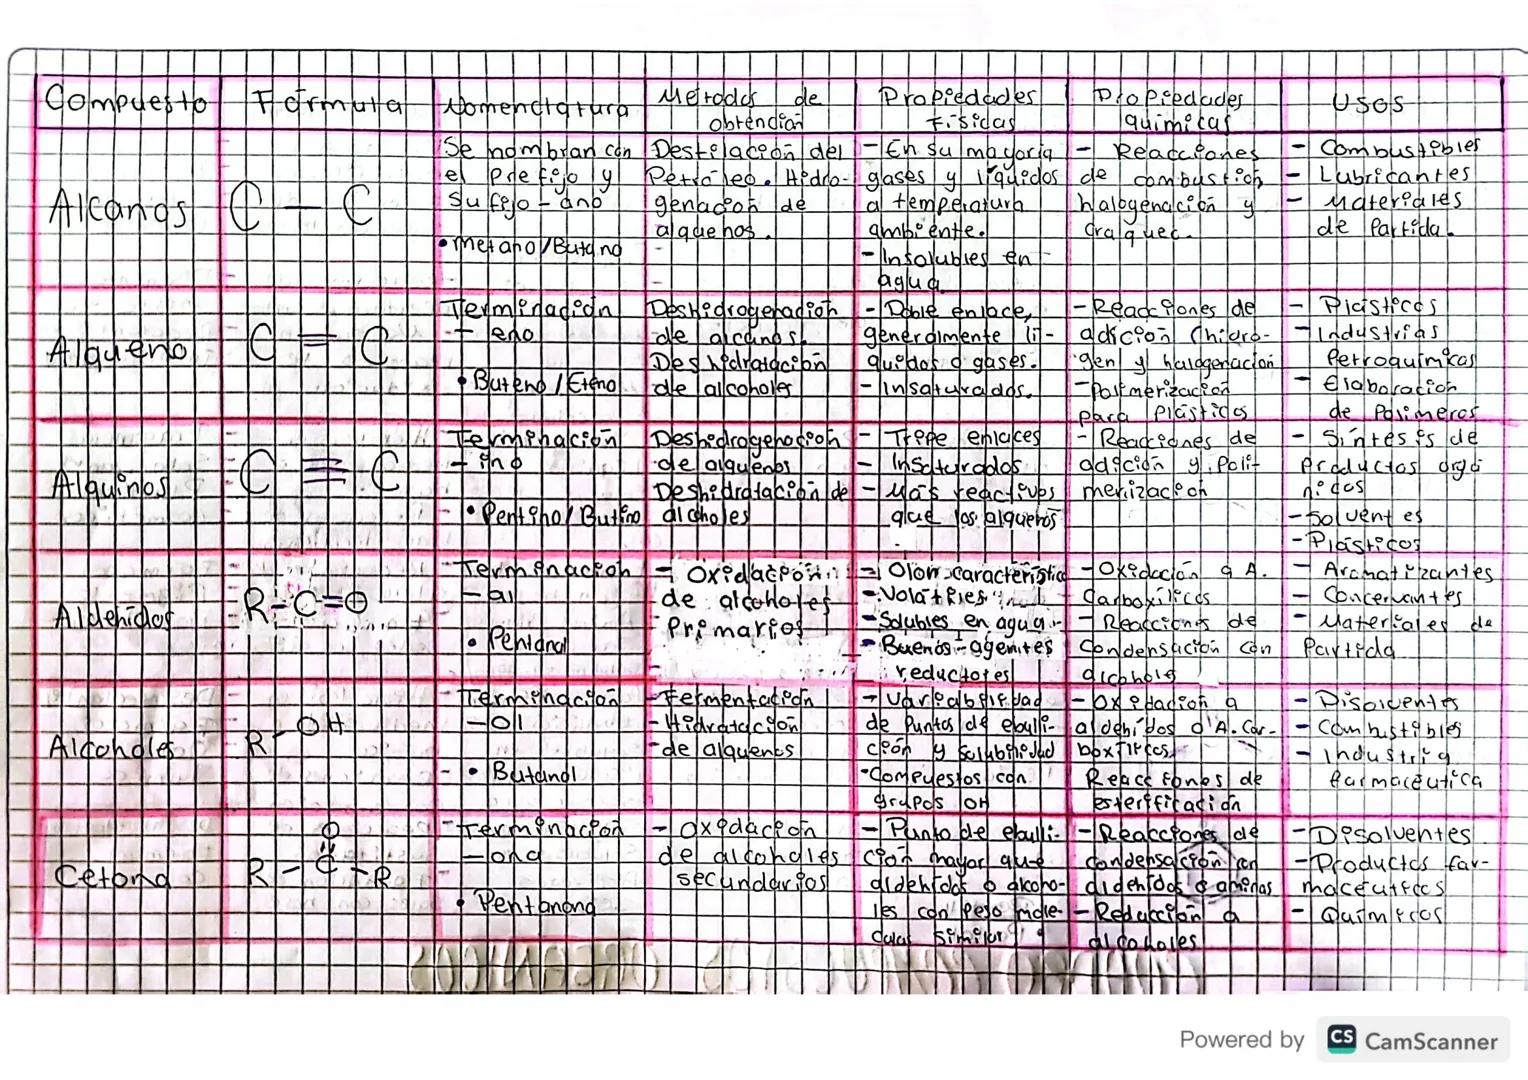 Compuesto
Fórmula
Nomenclatura
Metodos de
obtención
Propiedades
Físicas
Propiedades
químicas
Usos
Alcanos
C — C
Se nombran con
el prefijo y
sufijo - ano
• metano/Butano
Destilación del
Petróleo. Hidro-
genación de
alquenos.
- En su mayoría
gases y líquidos
a temperatura
ambiente.
- Insolubles en
agua
- Reacciones
de combustión,
halogenación y
- Combustibles
- Lubricantes
- Materiales
de Partida.
Alqueno
C = C
Terminación
- eno
• Buteno / Eteno
Deshidrogenación
de alcanos.
Deshidratación
de alcoholes
- Doble enlace,
generalmente lí-
quidos o gases.
- Insaturados.
- Reacciones de
adición (hidro-
gen y halogenación
- Polimerización
para Plásticos
- Plásticos
- Industrias
Petroquímicas
- Elaboración
de Polímeros
Alquinos
C ≡ C
Terminación
- ino
• Pentino/ Butino
Deshidrogenación
de alquenos
Deshidratación de
alcoholes
- Tripe enlaces
- Insaturados
- Más reactivos
que los alquenos
- Reacciones de
adición y Poli-
merización
- Síntesis de
productos orgá
nicos
- Solventes
- Plásticos
Aldehídos
R-C=O
Terminación
- al
• Pentanal
- Oxidación
de alcoholes
Primarios
- Olor característico
- Volátiles
- Solubles en agua
- Buenos agentes
reductores
- Oxidación a A.
Carboxílicos
- Reacciones de
Condensación con
alcoholes
- Aromatizantes
- Concervantes
- Materiales de
Partida
Alcoholes
R-OH
Terminación
- Oll
• Butanol
- Fermentación
- Hidratación
de alquenos
- Variabilidad
de Puntos de ebulli-
ción y solubilidad
- Compuestos con
grupos OH
- Oxidación a
aldehídos o A. Car-
boxílicos
Reacciones de
esterificación
- Disolventes
- Combustibles
- Industria
farmacéutica
Cetona
O
R - C - R
- Terminación
- ona
• Pentanona
- Oxidación
de alcoholes
secundarios
- Punto de ebulli-
ción mayor que
aldehídos o alcoho-
les con peso mole-
cular similar
- Reacciones de
condensación con
aldehídos o aminas
- Reducción a
alcoholes
- Disolventes
- Productos far-
maceuticos
- Químicos
Powered by CS CamScanner